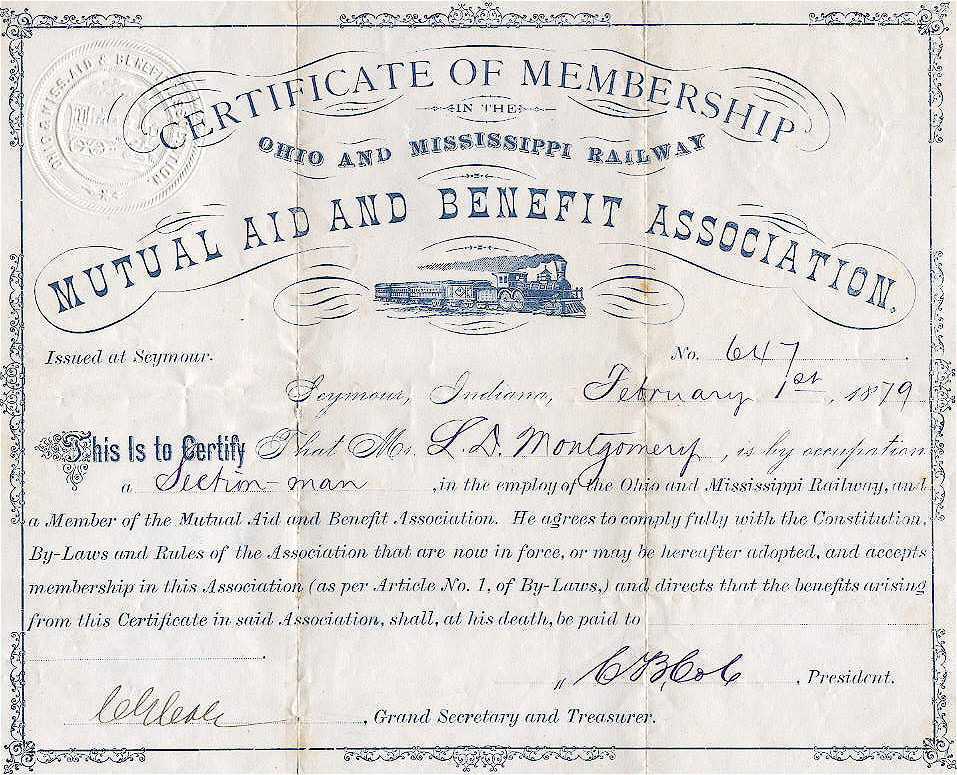 CERTIFICATE OF MEMBERSHIP
IN THE
OHIO AND MISSISSIPPI RAILWAY
MUTUAL AID AND BENEFIT ASSOCIATION.
Issued at Seymour.
No. 647
Seymour, Indiana, February 1st, 1879
This Is to Certify That Mr. L. D. Montgomery, is by occupation
a Section-man, in the employ of the Ohio and Mississippi Railway, and
a Member of the Mutual Aid and Benefit Association. He agrees to comply fully with the Constitution,
By-Laws and Rules of the Association that are now in force, or may be hereafter adopted, and accepts
membership in this Association (as per Article No. 1, of By-Laws,) and directs that the benefits arising
from this Certificate in said Association, shall, at his death, be paid to
, President.
, Grand Secretary and Treasurer.